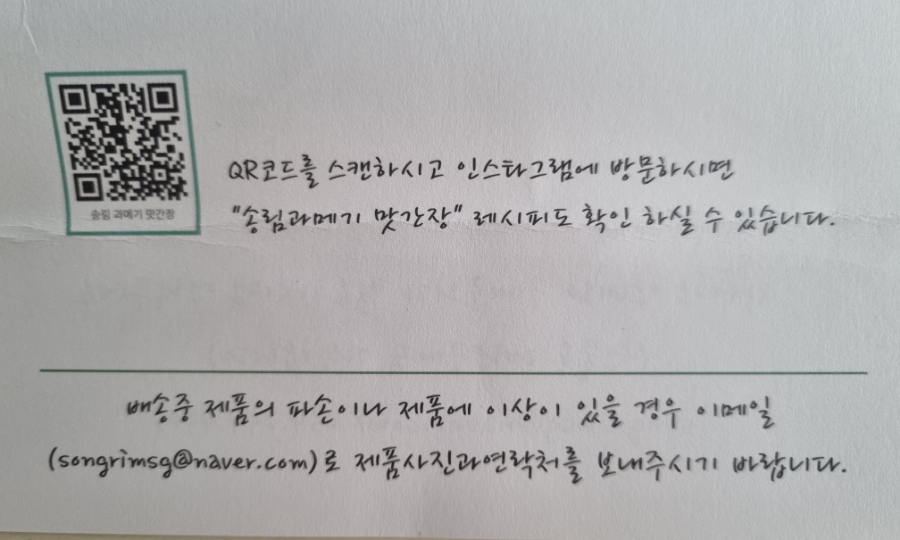 송림 과메기 맛간장
QR코드를 스캔하시고 인스타그램에 방문하시면
"송림과메기 맛간장" 레시피도 확인 하실 수 있습니다.
배송중 제품의 파손이나 제품에 이상이 있을 경우 이메일
(songrimsg@naver.com)로 제품사진과연락처를 보내주시기 바랍니다.